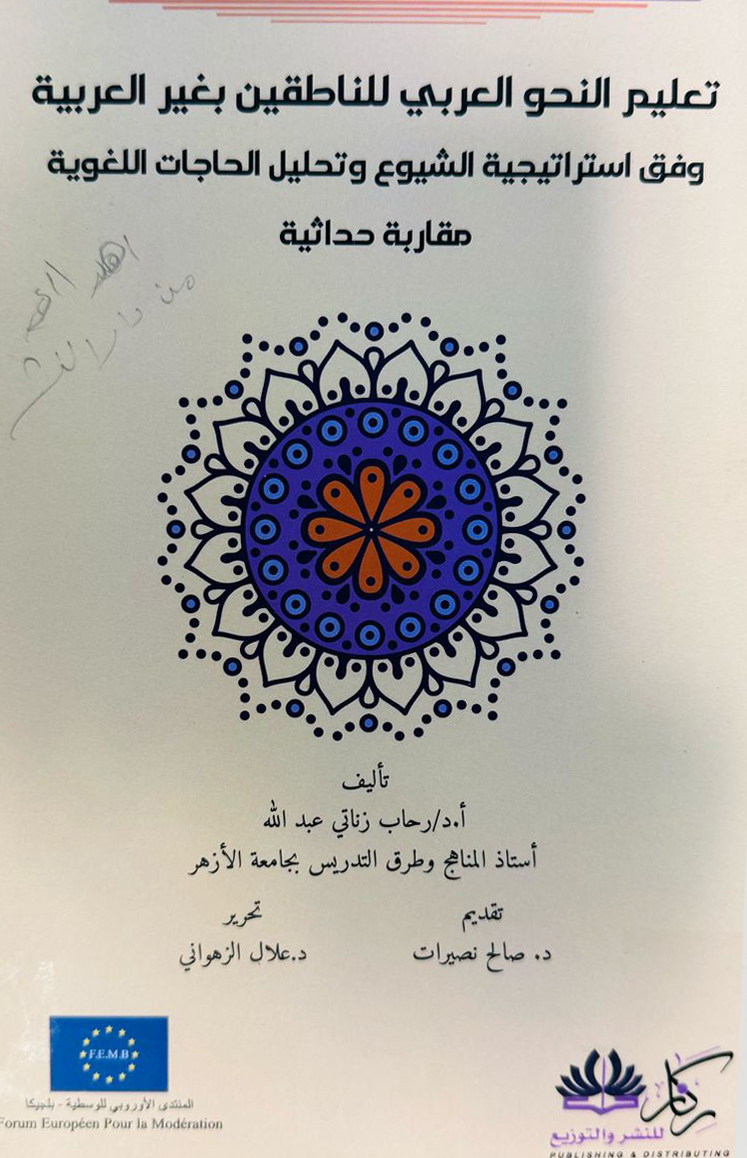 تعليم النحو العربي للناطقين بغير العربية
وفق استراتيجية الشيوع وتحليل الحاجات اللغوية
مقاربة حداثية
من دار النشر
تأليف
أ.د/رحاب زناتي عبد الله
أستاذ المناهج وطرق التدريس بجامعة الأزهر
تقديم
د. صالح نصيرات
تحرير
د.علال الزهواني
F.E.M.B
المنتدى الأوروبي للوسطية - بلجيكا
Forum Européen Pour la Modération
للنشر والتوزيع
PUBLISHING & DISTRIBUTING